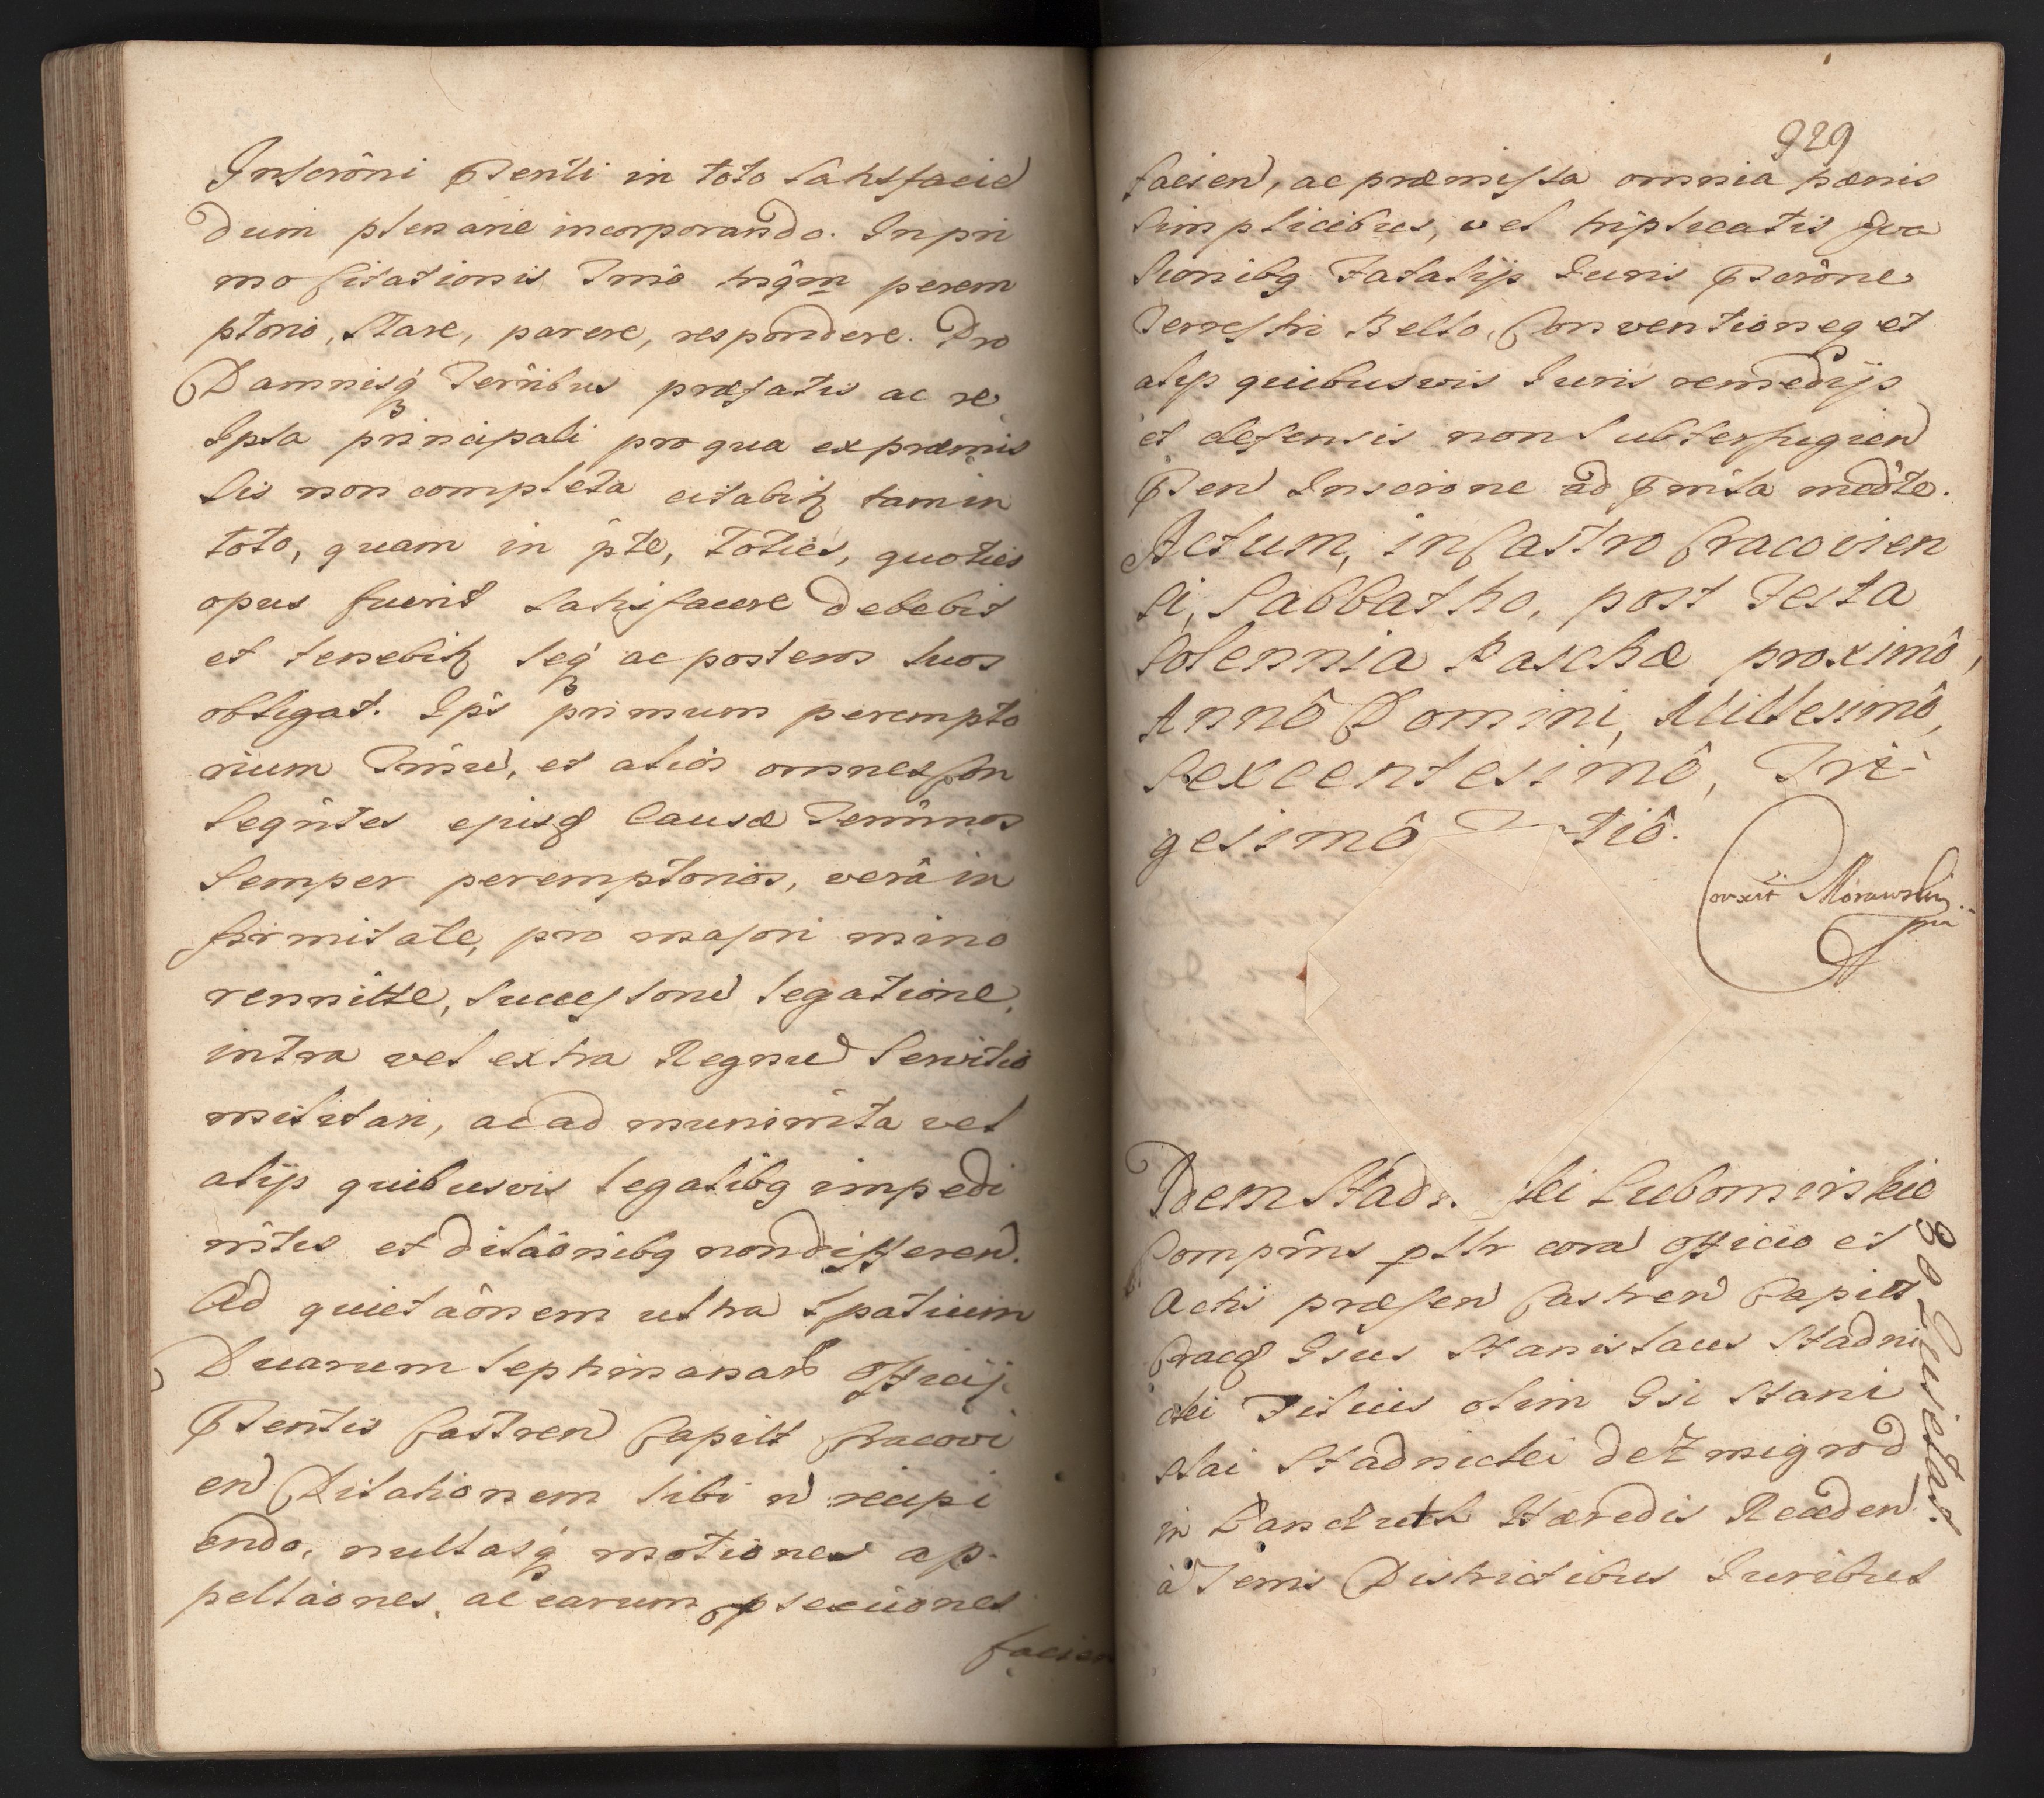 Inscrôni Prenti in toto satisfacie
dum plenarie incorporando. In pri
mo Citationis Tmô tnqm perem
ptorio, stare, parere, respondere. Pro
Damnisq Terribus præfatis ac re
ipsa principali pro qua ex præmis
sis non completa citabitr tam in
toto, quam in pte, toties, quoties
opus fuerit satisfacere debebit
et tenebitr seq ac posteros suos
obligat. Ips primum perempto
rium Tmu, et alios omnes Con
seqntes ejusq causæ Terminos
semper peremptorios, verâ in
firmitate, pro majori mino
rennitte, successone legatione,
intra vel extra Regnu Servitio
militari, ac ad munimta vel
alijs quibusvis legalibq impedi
mtis et dilaônibq non differen.
Ad quietaônem ultra spatium
Duarum septimanar Officij
Prentis Castren Capilt Cracovi
en Dilationem sibi n recipi
endo, nullasq motiones ap-
pellaônes, ac earum psecuiones
facien
929
facien, ac præmissa omnia pænis
simplicibus, vel triplicatis Eva
sionibq Fatalijs Juris Pscrône
Terrestri Bello, Conventioneq et
alijs quibusvis Juris remedijs
et defensis non subterfugien
Pren Inscrone ad Pmissa medte.
Actum, in Castro Cracovien
si, Sabbatho, post Festa
Solennia Paschæ proximô,
Annô Domini, Millesimô,
Sexcentesimô, Tri-
gesimô T tiô.
Corxit Morawsky
mp
Idem Stad lei Lubomirskie
Compms psltr cora officio et
Actis præsen Castren Capilt
Cracq Gsus Stanislaus Stadni
cki Filius olim Gsi Stani
slai Stadnicki de Zmigrod
in Lanckuth Hæredis Recæden
à Terris Districtibus Juribus
80 Quietat.